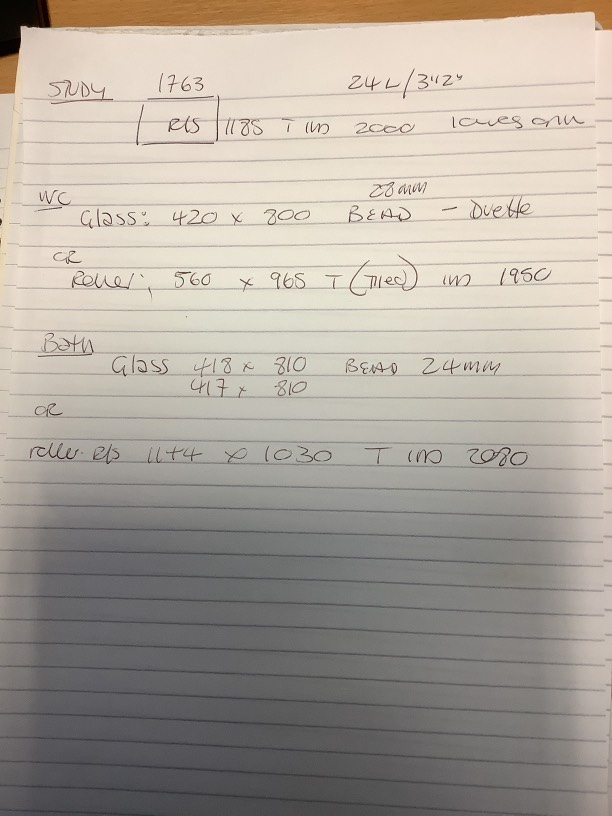 STUDY 1763 24L/3"2"
R/S 1185 T IN 2000
WC 28mm
Glass: 420 x 800 BEAD - Duette
OR
Roller: 560 x 965 T (Tiled) IN 1950
Bath
Glass 418 x 810 BEAD 24mm
417 x 810
OR
roller R/S 1174 x 1030 T IN 2080